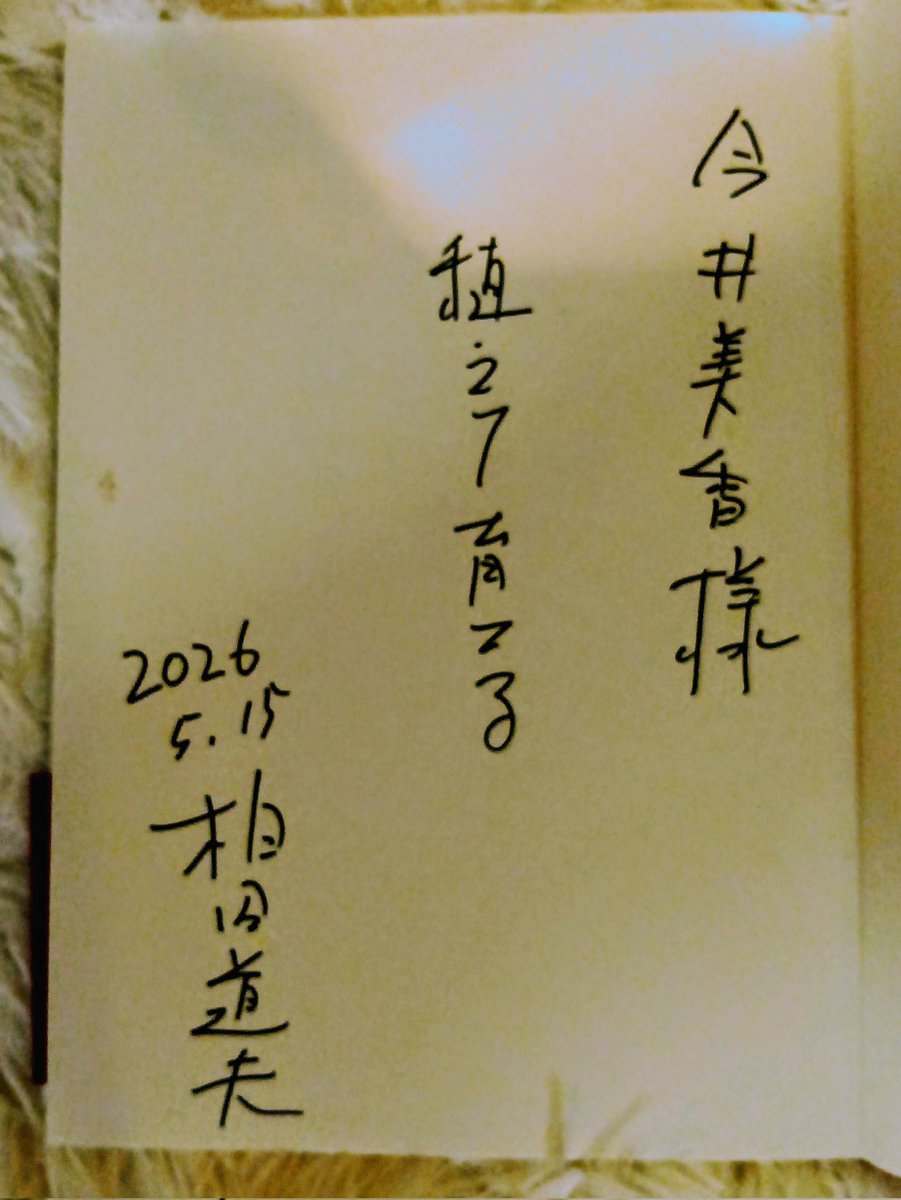 今井美香様
植えて育てる
2026
5.15
柏田道夫